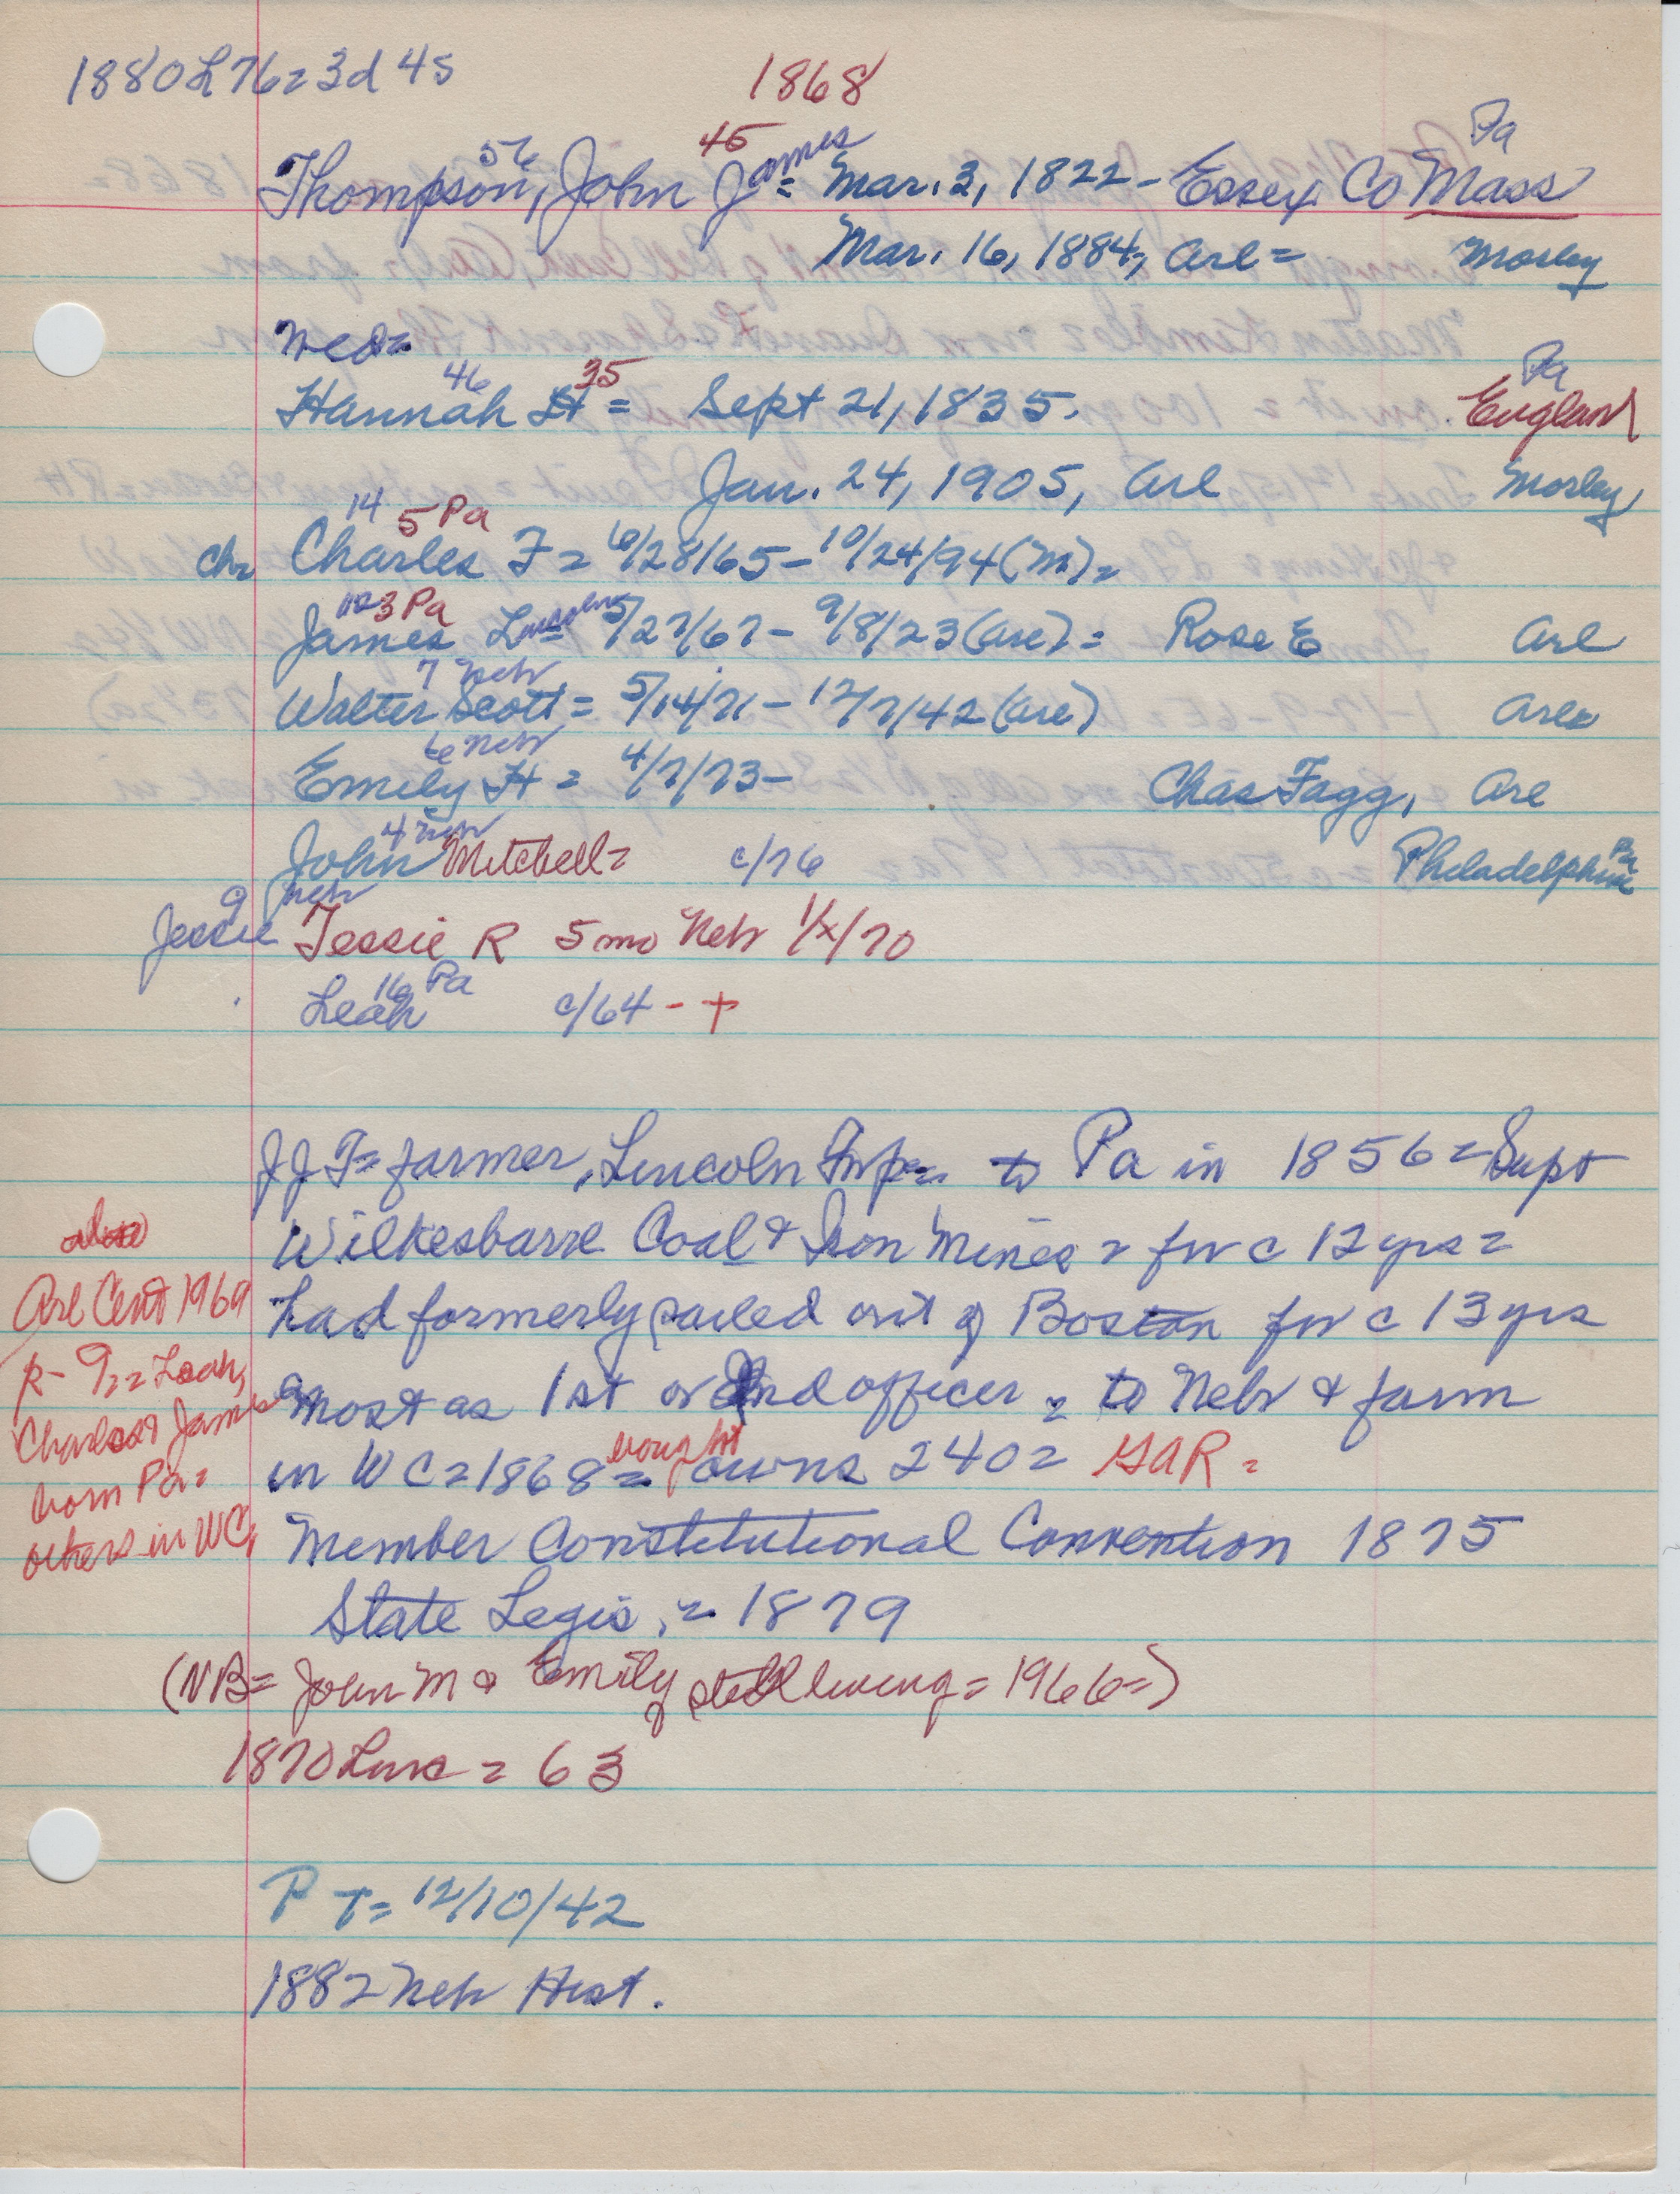 1880 L 76 = 3d 45
1868
Pa
56 45 James
Thompson, John J = Mar. 3, 1822 - Essex Co Mass
Mar. 16, 1884, Arl = Mosley
Wed =
46 35 Pa
Hannah H = Sept 21, 1835. England
Jan. 24, 1905, Arl Mosley
14 5 Pa
ch = Charles F = 6/28/65 - 10/24/94 (M) =
3 Pa Lincoln
James L = 5/27/67 - 9/8/23 (Arl) = Rose E Arl
7 Neb
Walter Scott = 5/14/71 - 12/7/42 (Arl) Arl
6 Neb
Emily H = 4/7/73 - Chas Fagg, Arl
4 Neb
John Mitchell = c/76 Philadelphia Pa
9 Neb
Jessie Tessie R 5 mo Neb 1/x/70
16 Pa
Leah c/64 - +
J J T = farmer, Lincoln Twp = to Pa in 1856 = Supt
Wilkesbarre Coal & Iron Mines = for c 12 yrs =
had formerly sailed out of Boston for c 13 yrs
most as 1st or 2nd officer = to Neb & farm
in WC = 1868 = bought owns 240 = GAR =
Member Constitutional Convention 1875
State Legis. = 1879
also
Arl Cent 1969
p - 92 = Leah,
Charles & James
born Pa =
others in WC
(NB = John M & Emily still living = 1966 =)
1870 Linc = 63
P T = 12/10/42
1882 Neb Hist.